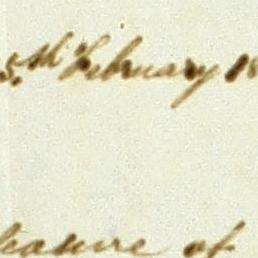 5th February 18
leasure of